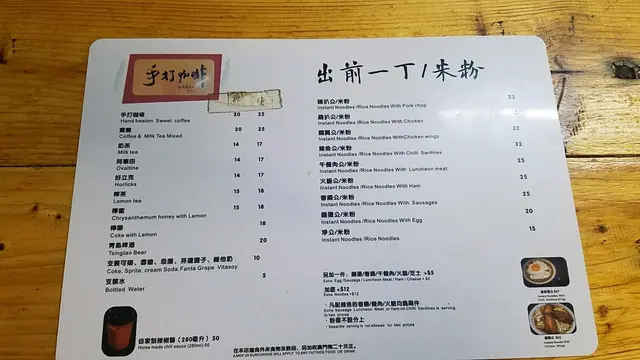 手打咖啡
熱 凍
手打咖啡 20 25
Hand beaten Sweet coffee
鴛鴦 20 25
Coffee & Milk Tea Mixed
奶茶 14 17
Milk tea
阿華田 14 17
Ovaltine
好立克 14 17
Horlicks
檸茶 15 18
Lemon tea
檸蜜 15 18
Chrysanthemum honey with Lemon
檸樂 18
Coke with Lemon
青島啤酒 20
Tsingtao Beer
支裝可樂、雪碧、忌廉、芬達提子、維他奶 10
Coke, Sprite, cream Soda, Fanta Grape Vitasoy
支裝水 5
Bottled Water
自家制辣椒醬 (280毫升) 50
Home made chili sauce (280ml) 50
出前一丁/米粉
豬扒公/米粉 32
Instant Noodles /Rice Noodles With Pork chop
雞扒公/米粉
Instant Noodles /Rice Noodles With Chicken
雞翼公/米粉 32
Instant Noodles /Rice Noodles With Chicken wings
辣魚公/米粉 32
Instant Noodles /Rice Noodles With Chili Sardines
午餐肉公/米粉 25
Instant Noodles /Rice Noodles With Luncheon meat
火腿公/米粉 25
Instant Noodles /Rice Noodles With Ham
香腸公/米粉 25
Instant Noodles /Rice Noodles With Sausages
雞蛋公/米粉 20
Instant Noodles /Rice Noodles With Egg
淨公/米粉 15
Instant Noodles /Rice Noodles
另加一件: 雞蛋/香腸/午餐肉/火腿/芝士 +$5
Extra Egg/Sausage/Luncheon Meat / Ham / Cheese +$5
加麵 +$12
Extra Noodles +$12
·凡配辣魚的香腸/餐肉/火腿均為兩件
Extra Sausage Luncheon Meat or Ham on Chili Sardines is serving in two pieces
·粉麵不設分上
Separate serving is not allowed for two pieces
在本店進食外來食物及飲品，另加收澳門幣二十元正。
A MOP 20 SURCHARGE WILL APPLY TO ANY OUTSIDE FOOD OR DRINK
Instant Noodles With
Instant Noodles With
Chicken Wings